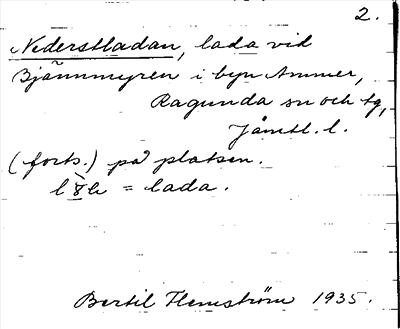 2.
Nederstladan, lada vid
Björnmyren i byn Ammer,
Ragunda sn och tg,
Jämtl. l.
(forts.) på platsen.
= lada.
Bertil Flemström 1935.